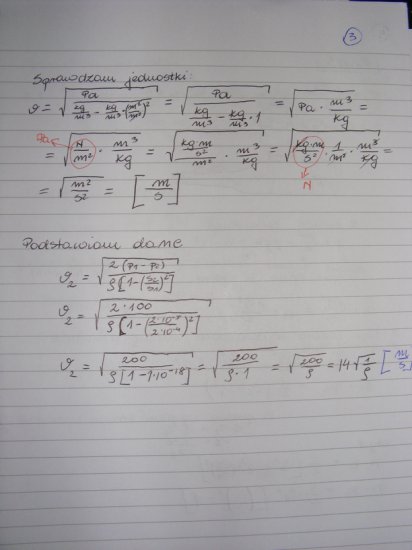 3
Sprawdzam jednostki:
ϑ = √(Pa / (kg/m³ - kg/m³ · (m²/m²)²)) = √(Pa / (kg/m³ - kg/m³ · 1)) = √(Pa · m³/kg) =
Pa ← = √(N/m² · m³/kg) = √((kg m/s²)/m² · m³/kg) = √(kg·m/s² · 1/m² · m³/kg) =
= √(m²/s²) = [m/s] N
Podstawiam dane
ϑ₂ = √(2(p₁ - p₂) / (ρ[1-(S₂/S₁)²]))
ϑ₂ = √(2·100 / (ρ[1-(2·10⁻⁷/2·10⁻⁴)²]))
ϑ₂ = √(200 / (ρ[1-1·10⁻¹⁸])) = √(200 / (ρ·1)) = √(200/ρ) = 14 √(1/ρ) [m/s]